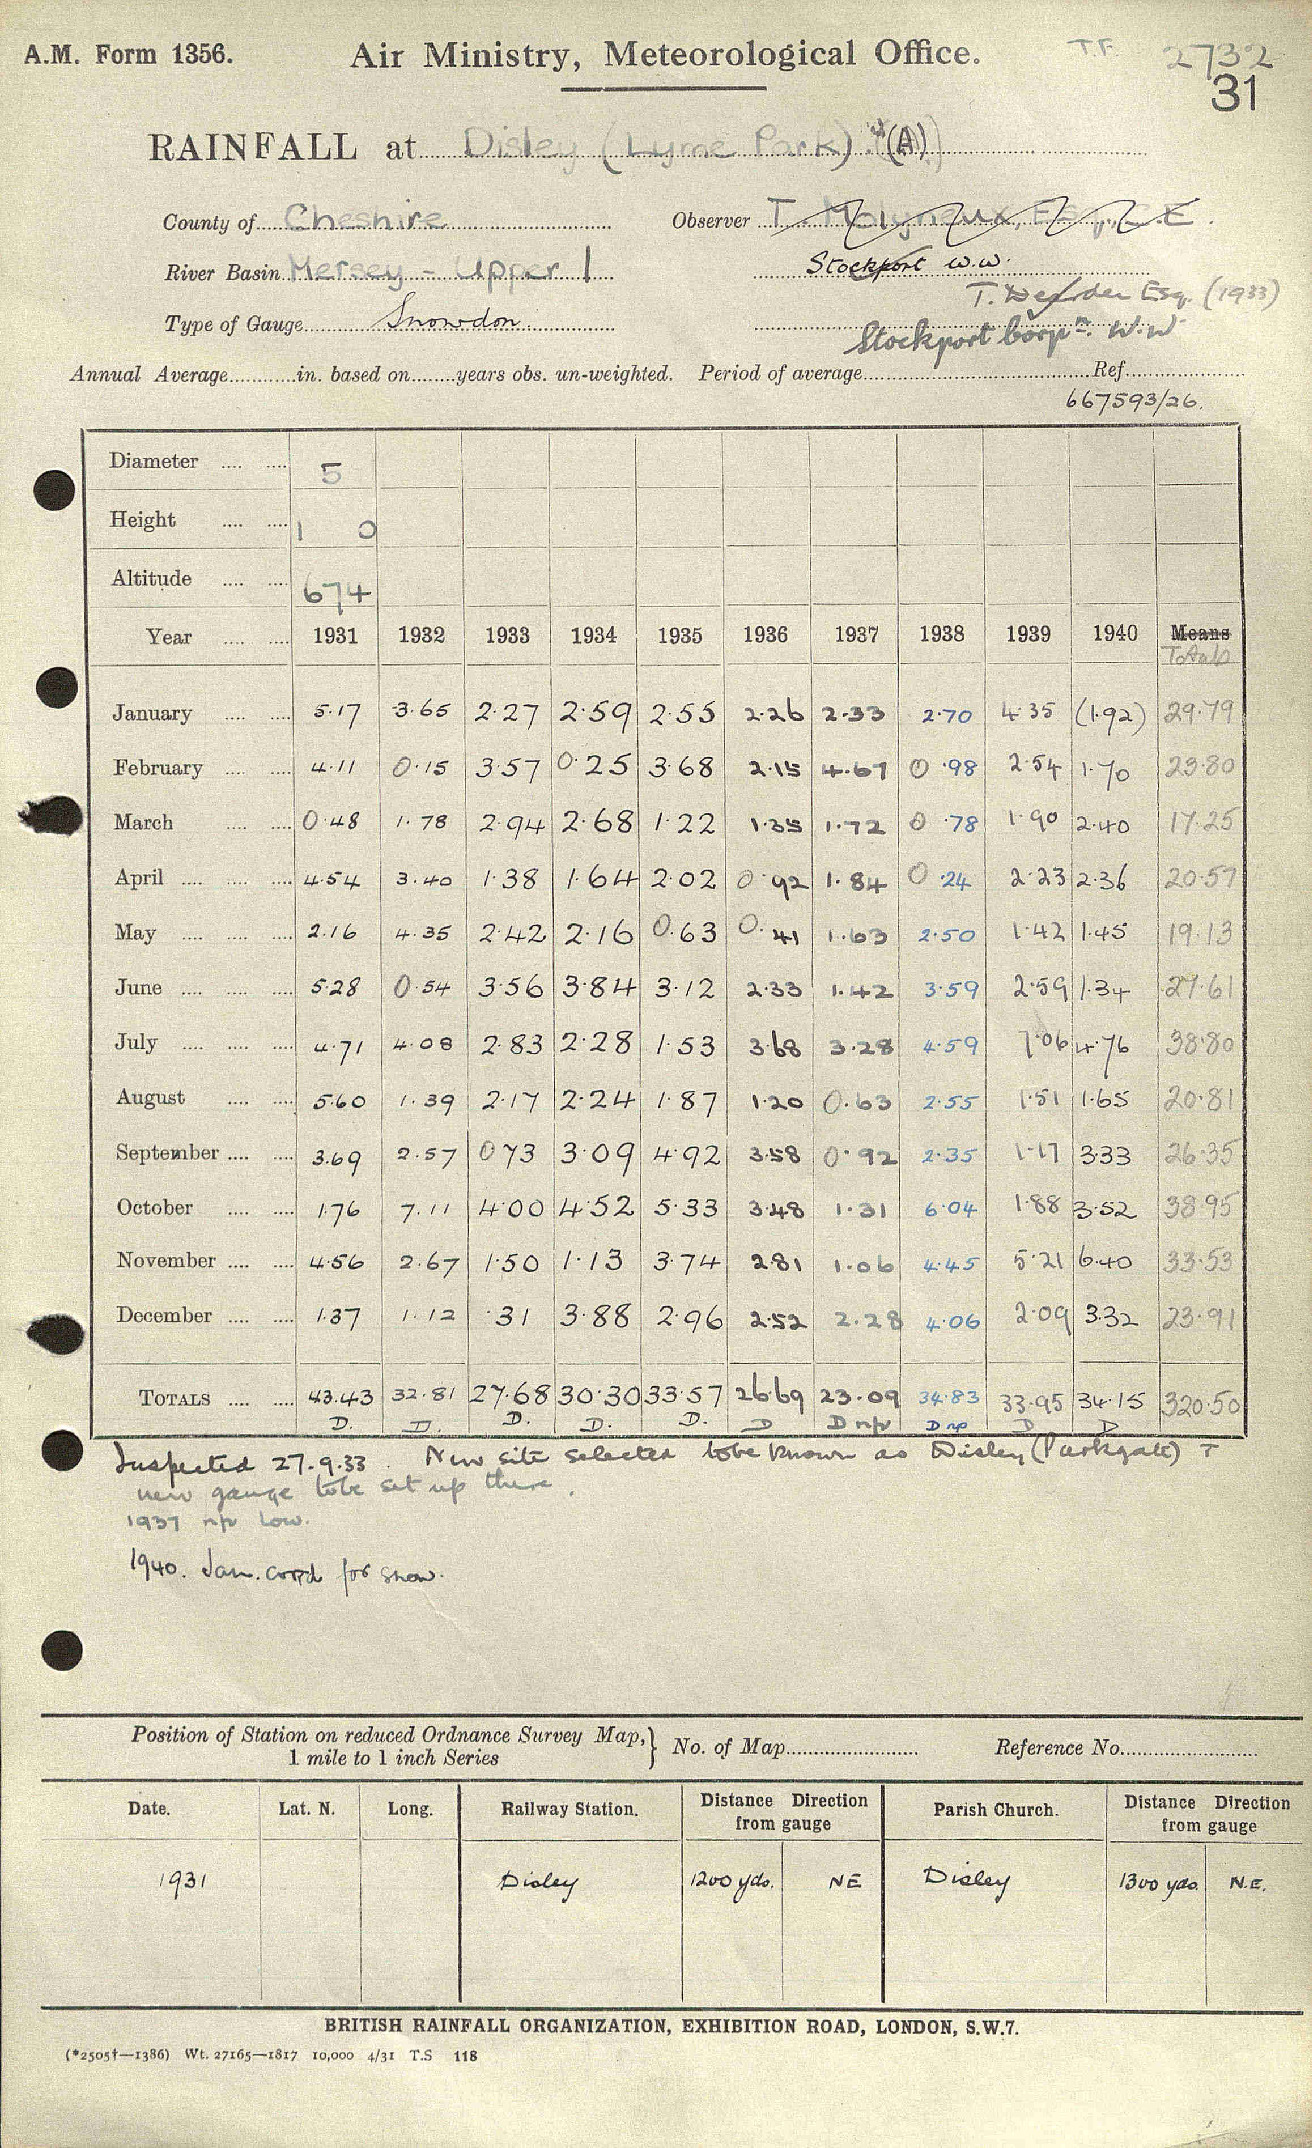 A.M. Form 1356. Air Ministry, Meteorological Office. T.F. 2732
31
RAINFALL at Disley (Lyme Park) (A)
County of Cheshire Observer T. Molyneux, Esq., C.E.
River Basin Mersey - Upper 1 Stockport W.W.
T. Esq. (1933)
Type of Gauge Snowdon Stockport Corpn. W.W
Annual Average in. based on years obs. un-weighted. Period of average Ref
667593/26.
Diameter 5
Height 1 0
Altitude 674
Year 1931 1932 1933 1934 1935 1936 1937 1938 1939 1940 Means
Totals
January 5.17 3.65 2.27 2.59 2.55 2.26 2.33 2.70 4.35 (1.92) 29.79
February 4.11 0.15 3.57 0.25 3.68 2.15 4.67 0.98 2.54 1.70 23.80
March 0.48 1.78 2.94 2.68 1.22 1.35 1.72 0.78 1.90 2.40 17.25
April 4.54 3.40 1.38 1.64 2.02 0.92 1.84 0.24 2.23 2.36 20.57
May 2.16 4.35 2.42 2.16 0.63 0.41 1.63 2.50 1.42 1.45 19.13
June 5.28 0.54 3.56 3.84 3.12 2.33 1.42 3.59 2.59 1.34 27.61
July 4.71 4.08 2.83 2.28 1.53 3.68 3.28 4.59 7.06 4.76 38.80
August 5.60 1.39 2.17 2.24 1.87 1.20 0.63 2.55 1.51 1.65 20.81
September 3.69 2.57 0.73 3.09 4.92 3.58 0.92 2.35 1.17 3.33 26.35
October 1.76 7.11 4.00 4.52 5.33 3.48 1.31 6.04 1.88 3.52 38.95
November 4.56 2.67 1.50 1.13 3.74 2.81 1.06 4.45 5.21 6.40 33.53
December 1.37 1.12 .31 3.88 2.96 2.52 2.28 4.06 2.09 3.32 23.91
TOTALS 43.43 32.81 27.68 30.30 33.57 26.69 23.09 34.83 33.95 34.15 320.50
D. D. D. D. D. D D np D np D D
Inspected 27.9.33. New site selected to be known as Disley (Parkgate) +
new gauge to be set up there.
1937 np low.
1940. Jan. corrd for snow.
Position of Station on reduced Ordnance Survey Map,
1 mile to 1 inch Series } No. of Map Reference No.
Date. Lat. N. Long. Railway Station. Distance Direction from gauge Parish Church. Distance Direction from gauge
1931 Disley 1200 yds. NE Disley 1300 yds. N.E.
BRITISH RAINFALL ORGANIZATION, EXHIBITION ROAD, LONDON, S.W.7.
(*2505†—1386) Wt. 27165—1817 10,000 4/31 T.S 118